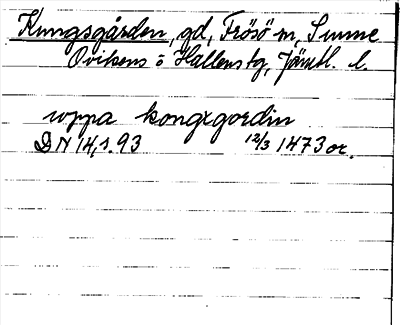 Kungsgården, gd, Frösö sn, Sunne
Ovikens o Hallens tg, Jämtl. l.
uppa kongsgordin
DN 14, s. 93 12/3 1473 or.